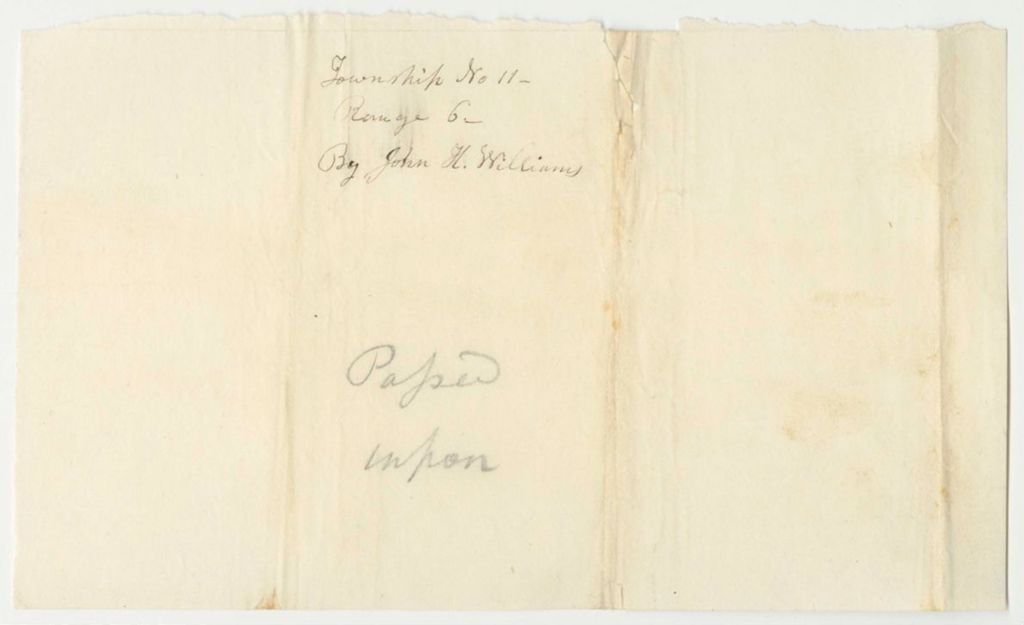 Township No 11-
Range 6-
By John H. Williams
Passed
upon